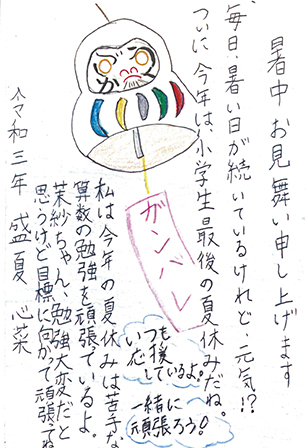 暑中お見舞い申し上げます
毎日、暑い日が続いているけれど、元気!?
ついに今年は、小学生最後の夏休みだね。
ガンバレ
私は今年の夏休みは苦手な
算数の勉強を頑張ているよ。
茉紗ちゃん、勉強大変だと
思うけど目標に向かって頑張てね
いつも
応援
しているよ!
一緒に
頑張ろう!
令和三年 盛夏 心菜